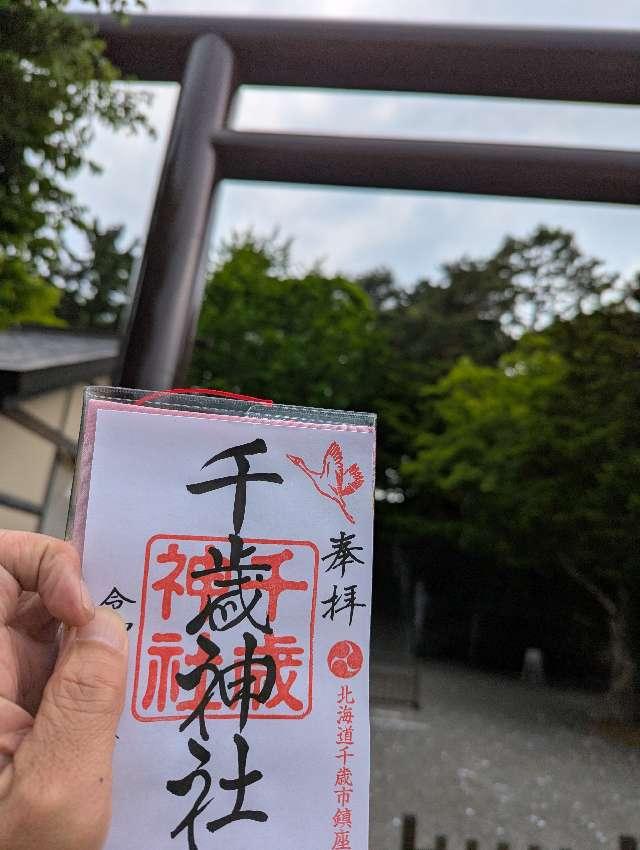 奉拝
北海道千歳市鎮座
千歳神社
千歳
神社
令